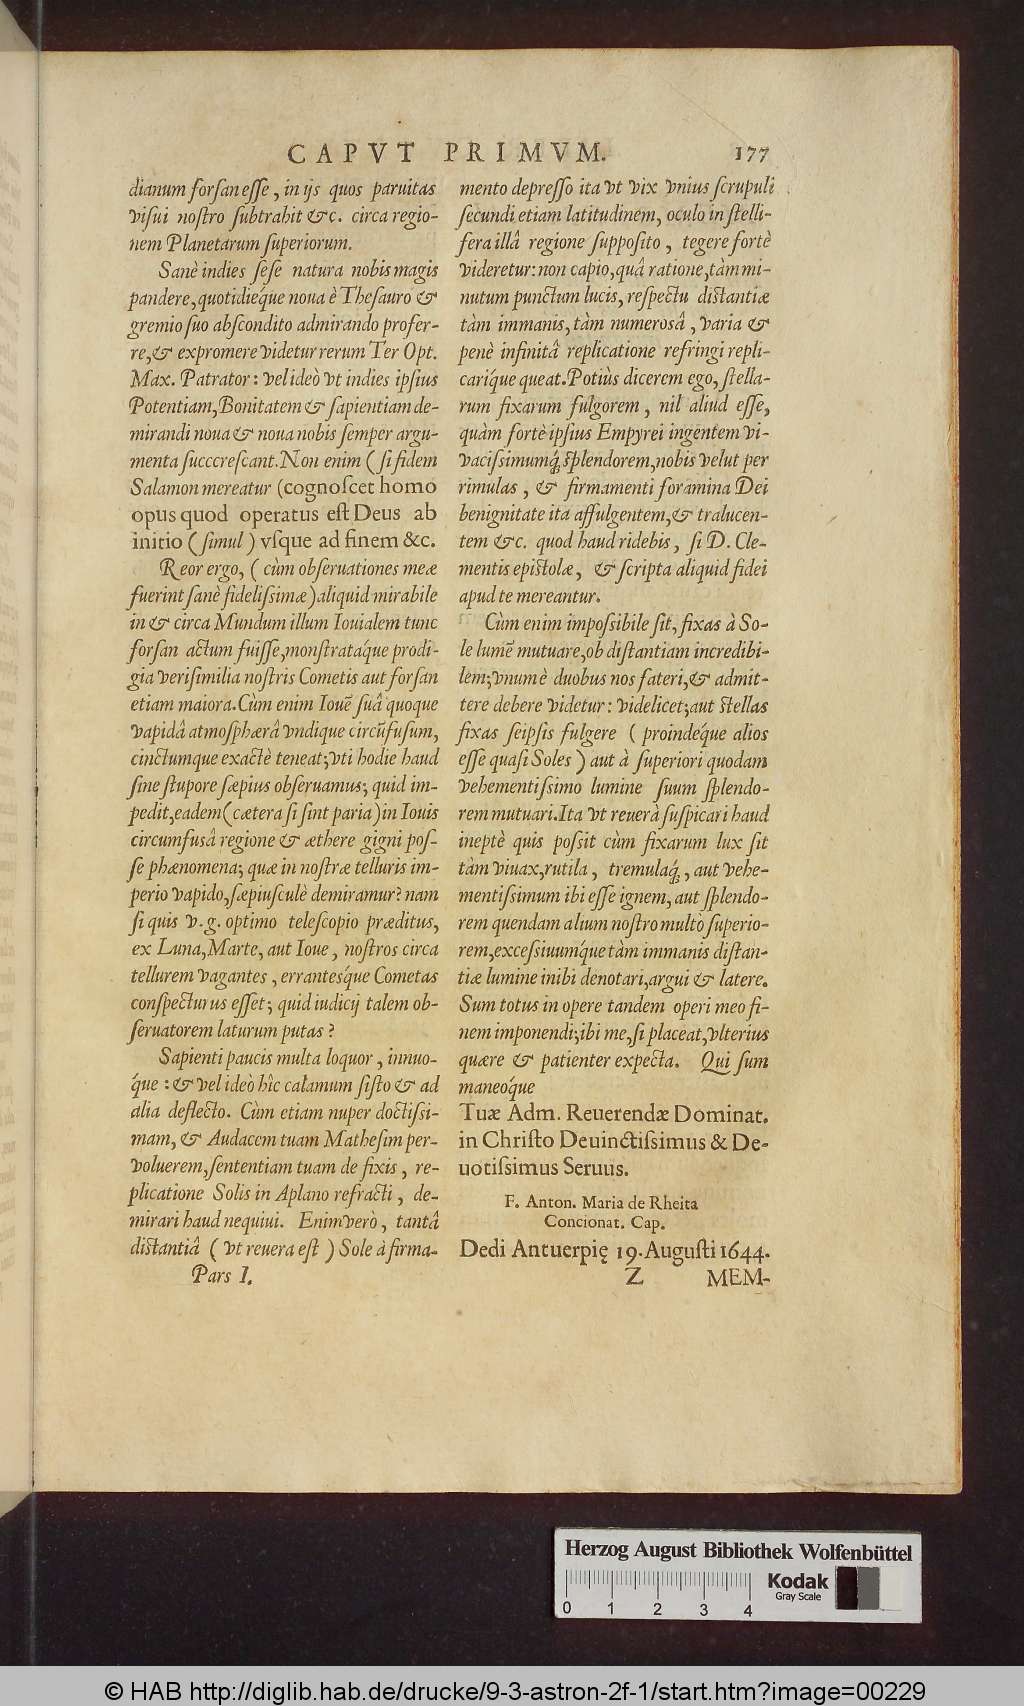 CAPVT PRIMVM. 177
dianum forſan eſſe, in ijs quos paruitas
viſui noſtro ſubtrahit &c. circa regio-
nem Planetarum ſuperiorum.
Sanè indies ſeſe natura nobis magis
pandere, quotidiéque noua è Theſauro &
gremio ſuo abſcondito admirando profer-
re, & expromere videtur rerum Ter Opt.
Max. Patrator: vel ideò vt indies ipſius
Potentiam, Bonitatem & ſapientiam de-
mirandi noua & noua nobis ſemper argu-
menta ſucccreſcant. Non enim (ſi fidem
Salamon mereatur (cognoſcet homo
opus quod operatus eſt Deus ab
initio (ſimul) vſque ad finem &c.
Reor ergo, (cùm obſeruationes meæ
fuerint ſanè fideliſſimæ) aliquid mirabile
in & circa Mundum illum Iouialem tunc
forſan actum fuiſſe, monſtratáque prodi-
gia veriſimilia noſtris Cometis aut forſan
etiam maiora. Cùm enim Iouē ſuâ quoque
vapidâ atmoſphærâ vndique circūfuſum,
cinctumque exactè teneat; vti hodie haud
ſine ſtupore ſæpius obſeruamus; quid im-
pedit, eadem (cætera ſi ſint paria) in Iouis
circumfusâ regione & æthere gigni poſ-
ſe phænomena; quæ in noſtræ telluris im-
perio vapido, ſæpiuſculè demiramur? nam
ſi quis v.g. optimo teleſcopio præditus,
ex Luna, Marte, aut Ioue, noſtros circa
tellurem vagantes, erranteſq́ue Cometas
conſpecturus eſſet; quid iudicij talem ob-
ſeruatorem laturum putas?
Sapienti paucis multa loquor, innuo-
q́ue: & vel ideò hîc calamum ſiſto & ad
alia deflecto. Cùm etiam nuper doctiſſi-
mam, & Audacem tuam Matheſim per-
voluerem, ſententiam tuam de fixis, re-
plicatione Solis in Aplano refracti, de-
mirari haud nequiui. Enimverò, tantâ
diſtantiâ (vt reuera eſt) Sole à firma-
Pars I.
mento depreſſo ita vt vix vnius ſcrupuli
ſecundi etiam latitudinem, oculo in ſtelli-
fera illâ regione ſuppoſito, tegere fortè
videretur: non capio, quâ ratione, tàm mi-
nutum punctum lucis, reſpectu diſtantiæ
tàm immanis, tàm numerosâ, varia &
penè infinitâ replicatione refringi repli-
cariq́ue queat. Potiùs dicerem ego, ſtella-
rum fixarum fulgorem, nil aliud eſſe,
quàm fortè ipſius Empyrei ingentem vi-
vaciſſimumq́; ſplendorem, nobis velut per
rimulas, & firmamenti foramina Dei
benignitate ita affulgentem, & tralucen-
tem &c. quod haud ridebis, ſi D. Cle-
mentis epiſtolæ, & ſcripta aliquid fidei
apud te mereantur.
Cùm enim impoſſibile ſit, fixas à So-
le lumē mutuare, ob diſtantiam incredibi-
lem; vnum è duobus nos fateri, & admit-
tere debere videtur: videlicet; aut ſtellas
fixas ſeipſis fulgere (proindéque alios
eſſe quaſi Soles) aut à ſuperiori quodam
vehementiſſimo lumine ſuum ſplendo-
rem mutuari. Ita vt reuerà ſuſpicari haud
ineptè quis poſſit cùm fixarum lux ſit
tàm viuax, rutila, tremulaq́;, aut vehe-
mentiſſimum ibi eſſe ignem, aut ſplendo-
rem quendam alium noſtro multò ſuperio-
rem, exceſſiuumq́ue tàm immanis diſtan-
tiæ lumine inibi denotari, argui & latere.
Sum totus in opere tandem operi meo fi-
nem imponendi; ibi me, ſi placeat, vlterius
quære & patienter expecta. Qui ſum
maneoq́ue
Tuæ Adm. Reuerendæ Dominat.
in Chriſto Deuinctiſſimus & De-
uotiſſimus Seruus.
F. Anton. Maria de Rheita
Concionat. Cap.
Dedi Antuerpię 19. Auguſti 1644.
Z MEM-
Herzog August Bibliothek Wolfenbüttel
0 1 2 3 4
Kodak
Gray Scale
© HAB http://diglib.hab.de/drucke/9-3-astron-2f-1/start.htm?image=00229